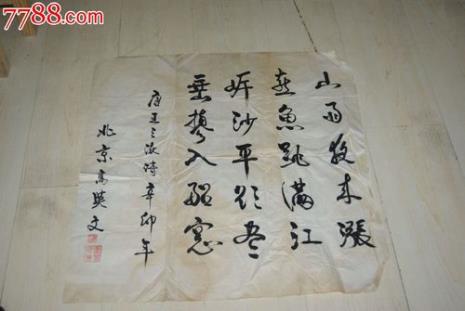 7788.com
山雨夜来漲
喜魚跳满江
岸沙平欲尽
垂蓼入船窓
唐王之涣诗辛卯年
北京高英文